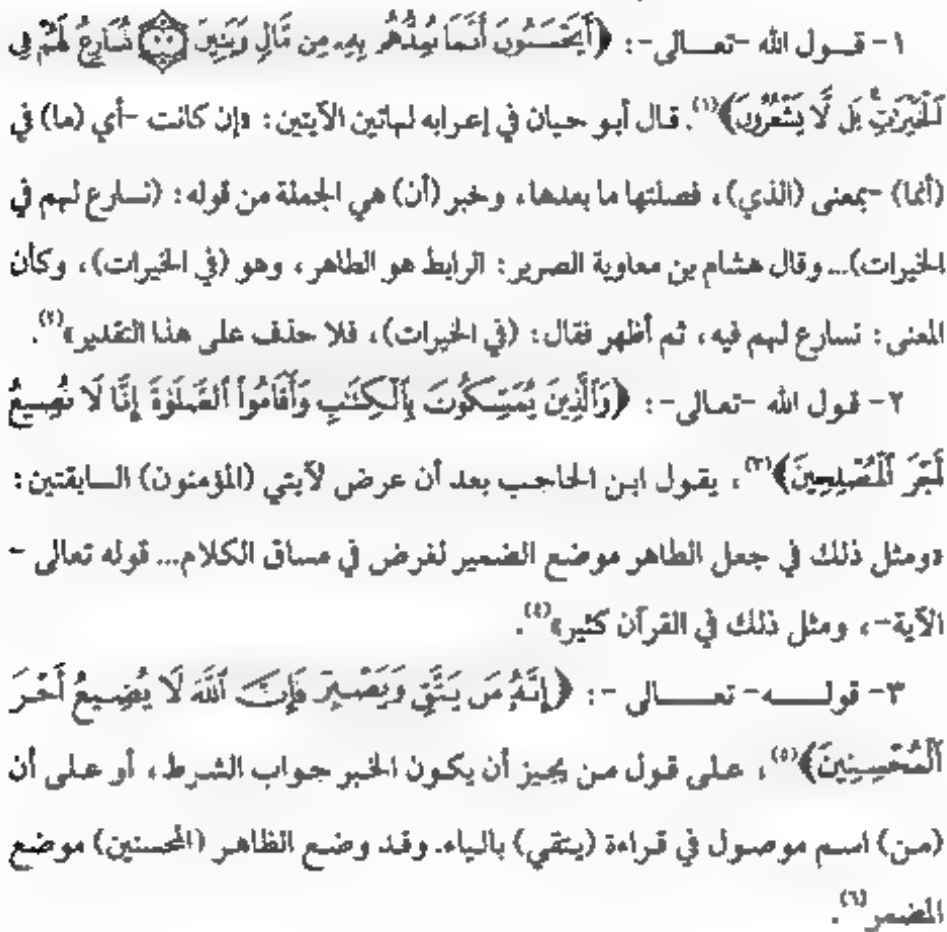 ١- قول الله -تعالى-: ﴿أَيَحْسَبُونَ أَنَّمَا نُمِدُّهُم بِهِ مِن مَّالٍ وَبَنِينَ ۝ نُسَارِعُ لَهُمْ فِي
الْخَيْرَاتِ بَل لَّا يَشْعُرُونَ﴾(١). قال أبو حيان في إعرابه لهاتين الآيتين: «إن كانت -أي (ما) في
(أنما) -بمعنى (الذي)، فصلتها ما بعدها، وخبر (أن) هي الجملة من قوله: (نسارع لهم في
الخيرات)... وقال هشام بن معاوية الضرير: الرابط هو الظاهر، وهو (في الخيرات)، وكأن
المعنى: نسارع لهم فيه، ثم أظهر فقال: (في الخيرات)، فلا حذف على هذا التقدير»(٢).
٢- قول الله -تعالى-: ﴿وَالَّذِينَ يُمَسِّكُونَ بِالْكِتَابِ وَأَقَامُوا الصَّلَوٰةَ إِنَّا لَا نُضِيعُ
أَجْرَ الْمُصْلِحِينَ﴾(٣)، يقول ابن الحاجب بعد أن عرض لآيتي (المؤمنون) السابقتين:
«ومثل ذلك في جعل الظاهر موضع الضمير لغرض في مساق الكلام... قوله تعالى -
الآية-، ومثل ذلك في القرآن كثير»(٤).
٣- قولـه- تعـالى -: ﴿إِنَّهُ مَن يَتَّقِ وَيَصْبِرْ فَإِنَّ اللَّهَ لَا يُضِيعُ أَجْرَ
الْمُحْسِنِينَ﴾(٥)، على قول من يجيز أن يكون الخبر جواب الشرط، أو على أن
(من) اسم موصول في قراءة (يتقي) بالياء. وقد وضع الظاهر (المحسنين) موضع
المضمر(٦).